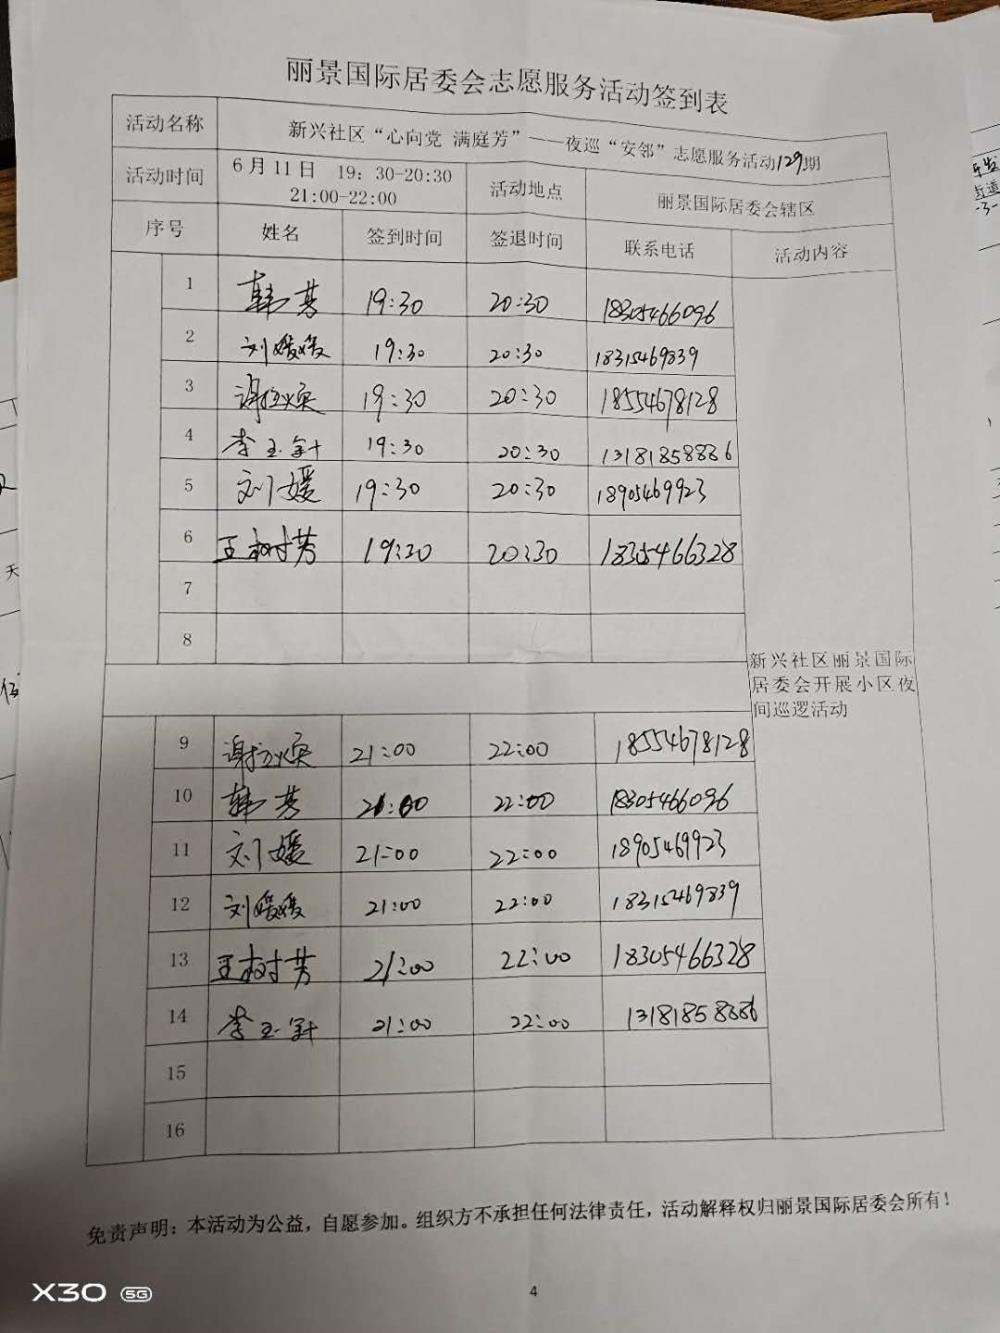 丽景国际居委会志愿服务活动签到表
活动名称 新兴社区“心向党 满庭芳”——夜巡“安邻”志愿服务活动129期
活动时间 6月11日 19：30-20:30 21:00-22:00 活动地点 丽景国际居委会辖区
序号 姓名 签到时间 签退时间 联系电话 活动内容
1 韩芳 19:30 20:30 18305466096
2 刘媛媛 19:30 20:30 18315469839
3 19:30 20:30 18554678128
4 李玉针 19:30 20:30 13181858886
5 刘媛 19:30 20:30 18905469923
6 王树芳 19:30 20:30 18305466328
7
8
新兴社区丽景国际
居委会开展小区夜
间巡逻活动
9 21:00 22:00 18554678128
10 韩芳 21:00 22:00 18305466096
11 刘媛 21:00 22:00 18905469923
12 刘媛媛 21:00 22:00 18315469839
13 王树芳 21:00 22:00 18305466328
14 李玉针 21:00 22:00 13181858886
15
16
免责声明：本活动为公益，自愿参加。组织方不承担任何法律责任，活动解释权归丽景国际居委会所有！
4
X30 5G